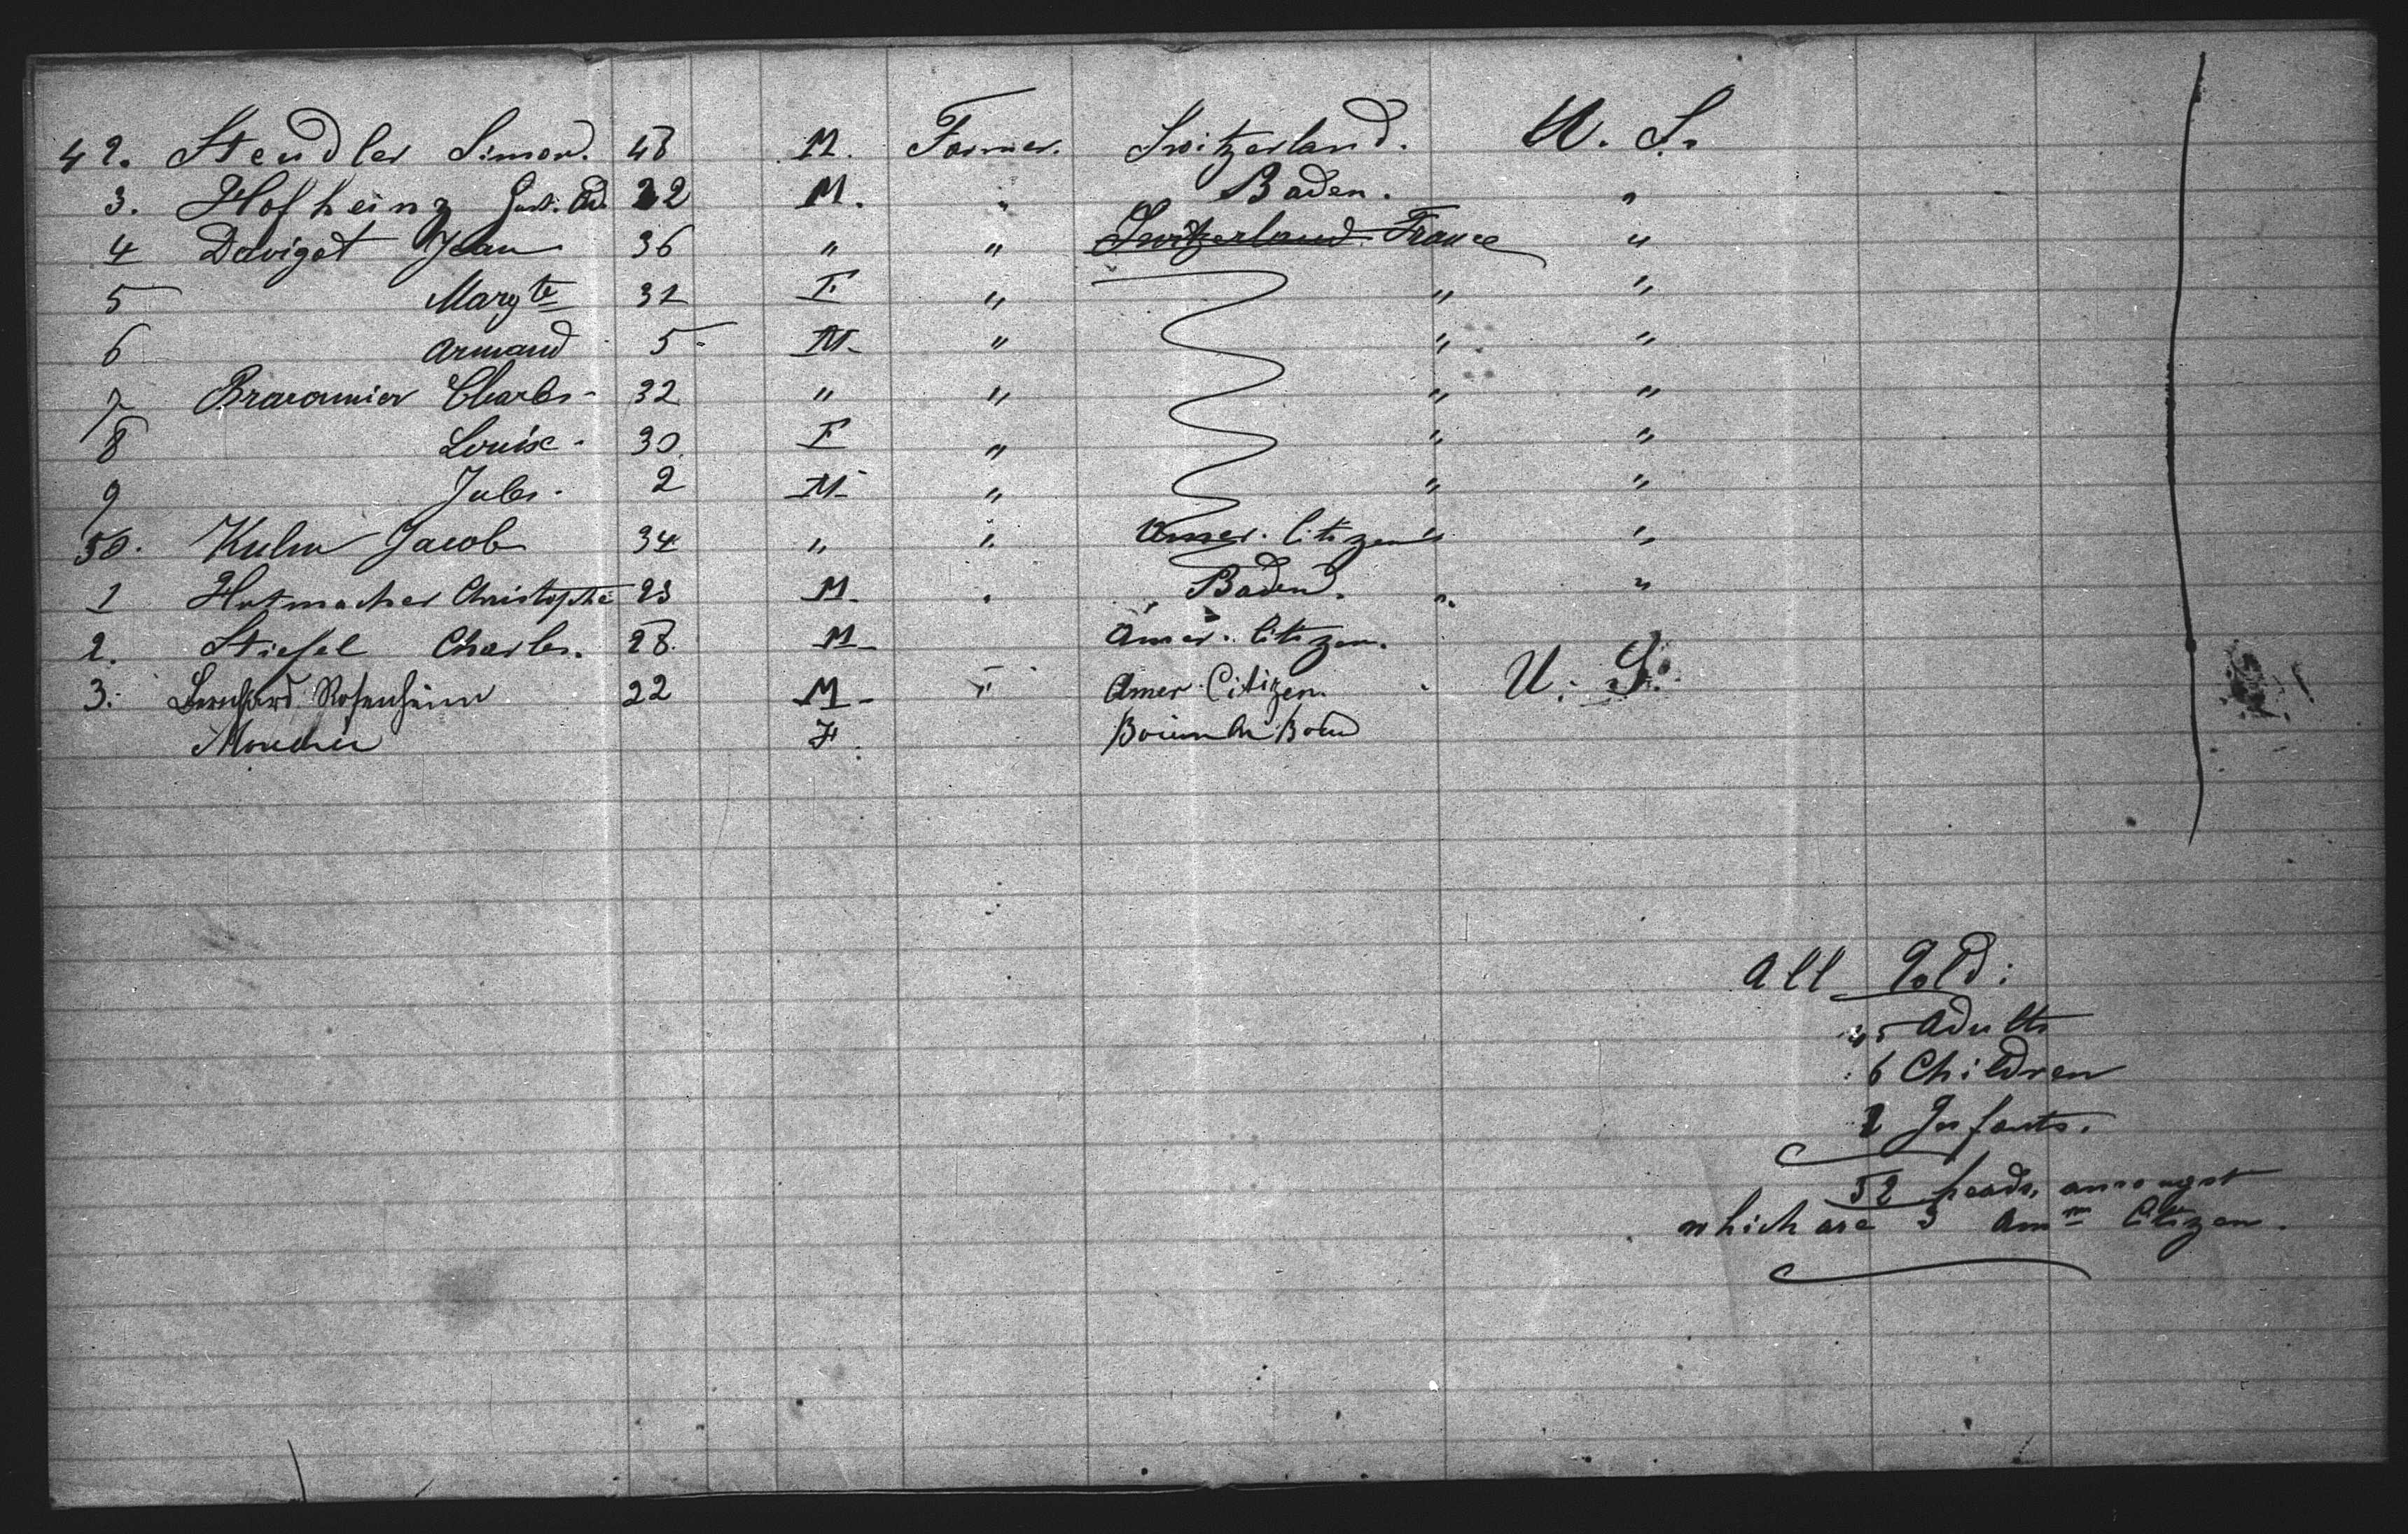 42. Steudler Simon. 48 M. Farmer. Switzerland. U. S.
3. Hofheinz Gust. Ad. 22 M. " Baden. "
4 Daviget Jean 36 " " Switzerland France "
5 Mary te 32 F " " "
6 Armand 5 - M- " " "
7 Charles - 32 " " " "
8 Louise - 30. F " " "
9 Jules - 2 M- " " "
50. Kulm Jacob 34 " " Amer. Citizen " "
1 Hutmacher Christophe 23 M- " Baden. " "
2. Stiefel Charles. 28. M- Amer. Citizen.
3. Bernhard Rosenheim 22 M- " Amer Citizen. U. S.
F.
All Told:
45 Adults
6 Children
2 Infants.
52 heads, amongst
which are 3 Amn Citizen.